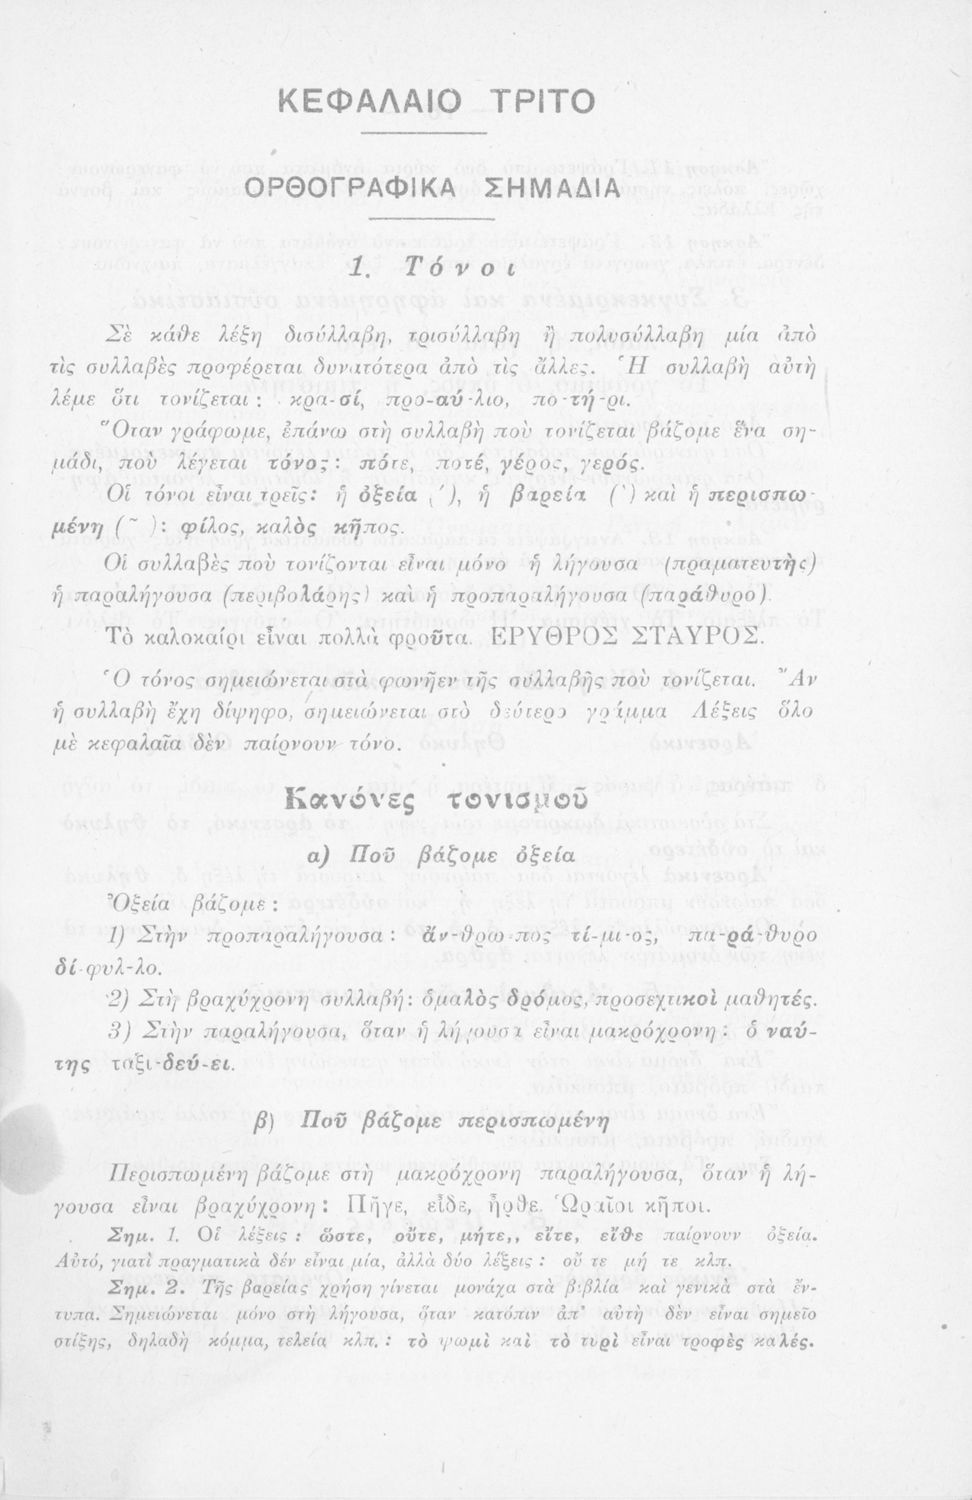 ΚΕΦΑΛΑΙΟ ΤΡΙΤΟ
ΟΡΘΟΓΡΑΦΙΚΑ ΣΗΜΑΔΙΑ
1. Τόνοι
Σὲ κάθε λέξη δισύλλαβη, τρισύλλαβη ἢ πολυσύλλαβη μία ἀπὸ
τὶς συλλαβὲς προφέρεται δυνατότερα ἀπὸ τὶς ἄλλες. Ἡ συλλαβὴ αὐτὴ
λέμε ὅτι τονίζεται : κρα-σί, προ-αύ-λιο, πο-τή-ρι.
Ὅταν γράφωμε, ἐπάνω στὴ συλλαβὴ ποὺ τονίζεται βάζομε ἕνα ση-
μάδι, ποὺ λέγεται τόνος: πότε, ποτέ, γέρος, γερός.
Οἱ τόνοι εἶναι τρεῖς: ἡ ὀξεία (΄), ἡ βαρεία (`) καὶ ἡ περισπω-
μένη (~ ): φίλος, καλὸς κῆπος.
Οἱ συλλαβὲς ποὺ τονίζονται εἶναι μόνο ἡ λήγουσα (πραματευτὴς)
ἡ παραλήγουσα (περιβολάρης) καὶ ἡ προπαραλήγουσα (παράθυρο).
Τὸ καλοκαίρι εἶναι πολλὰ φροῦτα. ΕΡΥΘΡΟΣ ΣΤΑΥΡΟΣ.
Ὁ τόνος σημειώνεται στὰ φωνῆεν τῆς συλλαβῆς ποὺ τονίζεται. Ἂν
ἡ συλλαβὴ ἔχη δίψηφο, σημειώνεται στὸ δεύτερο γράμμα Λέξεις ὅλο
μὲ κεφαλαῖα δὲν παίρνουν τόνο.
Κανόνες τονισμοῦ
α) Ποῦ βάζομε ὀξεία
Ὀξεία βάζομε :
1) Στὴν προπαραλήγουσα : ἄν-θρω-πος τί-μι-ος, πα-ρά-θυρο
δί-φυλ-λο.
2) Στὴ βραχύχρονη συλλαβή: ὁμαλὸς δρόμος, προσεχτικοὶ μαθητές.
3) Στὴν παραλήγουσα, ὅταν ἡ λήγουσα εἶναι μακρόχρονη : ὁ ναύ-
της ταξι-δεύ-ει.
β) Ποῦ βάζομε περισπωμένη
Περισπωμένη βάζομε στὴ μακρόχρονη παραλήγουσα, ὅταν ἡ λή-
γουσα εἶναι βραχύχρονη : Πῆγε, εἶδε, ἦρθε. Ὡραῖοι κῆποι.
Σημ. 1. Οἱ λέξεις : ὥστε, οὔτε, μήτε,, εἴτε, εἴθε παίρνουν ὀξεία.
Αὐτό, γιατὶ πραγματικὰ δέν εἶναι μία, ἀλλὰ δύο λέξεις : οὔ τε μή τε κλπ.
Σημ. 2. Τῆς βαρείας χρήση γίνεται μονάχα στὰ βιβλία καὶ γενικὰ στὰ ἔν-
τυπα. Σημειώνεται μόνο στὴ λήγουσα, ὅταν κατόπιν ἀπ' αὐτὴ δὲν εἶναι σημεῖο
στίξης, δηλαδὴ κόμμα, τελεία κλπ. : τὸ ψωμὶ καὶ τὸ τυρὶ εἶναι τροφὲς καλές.